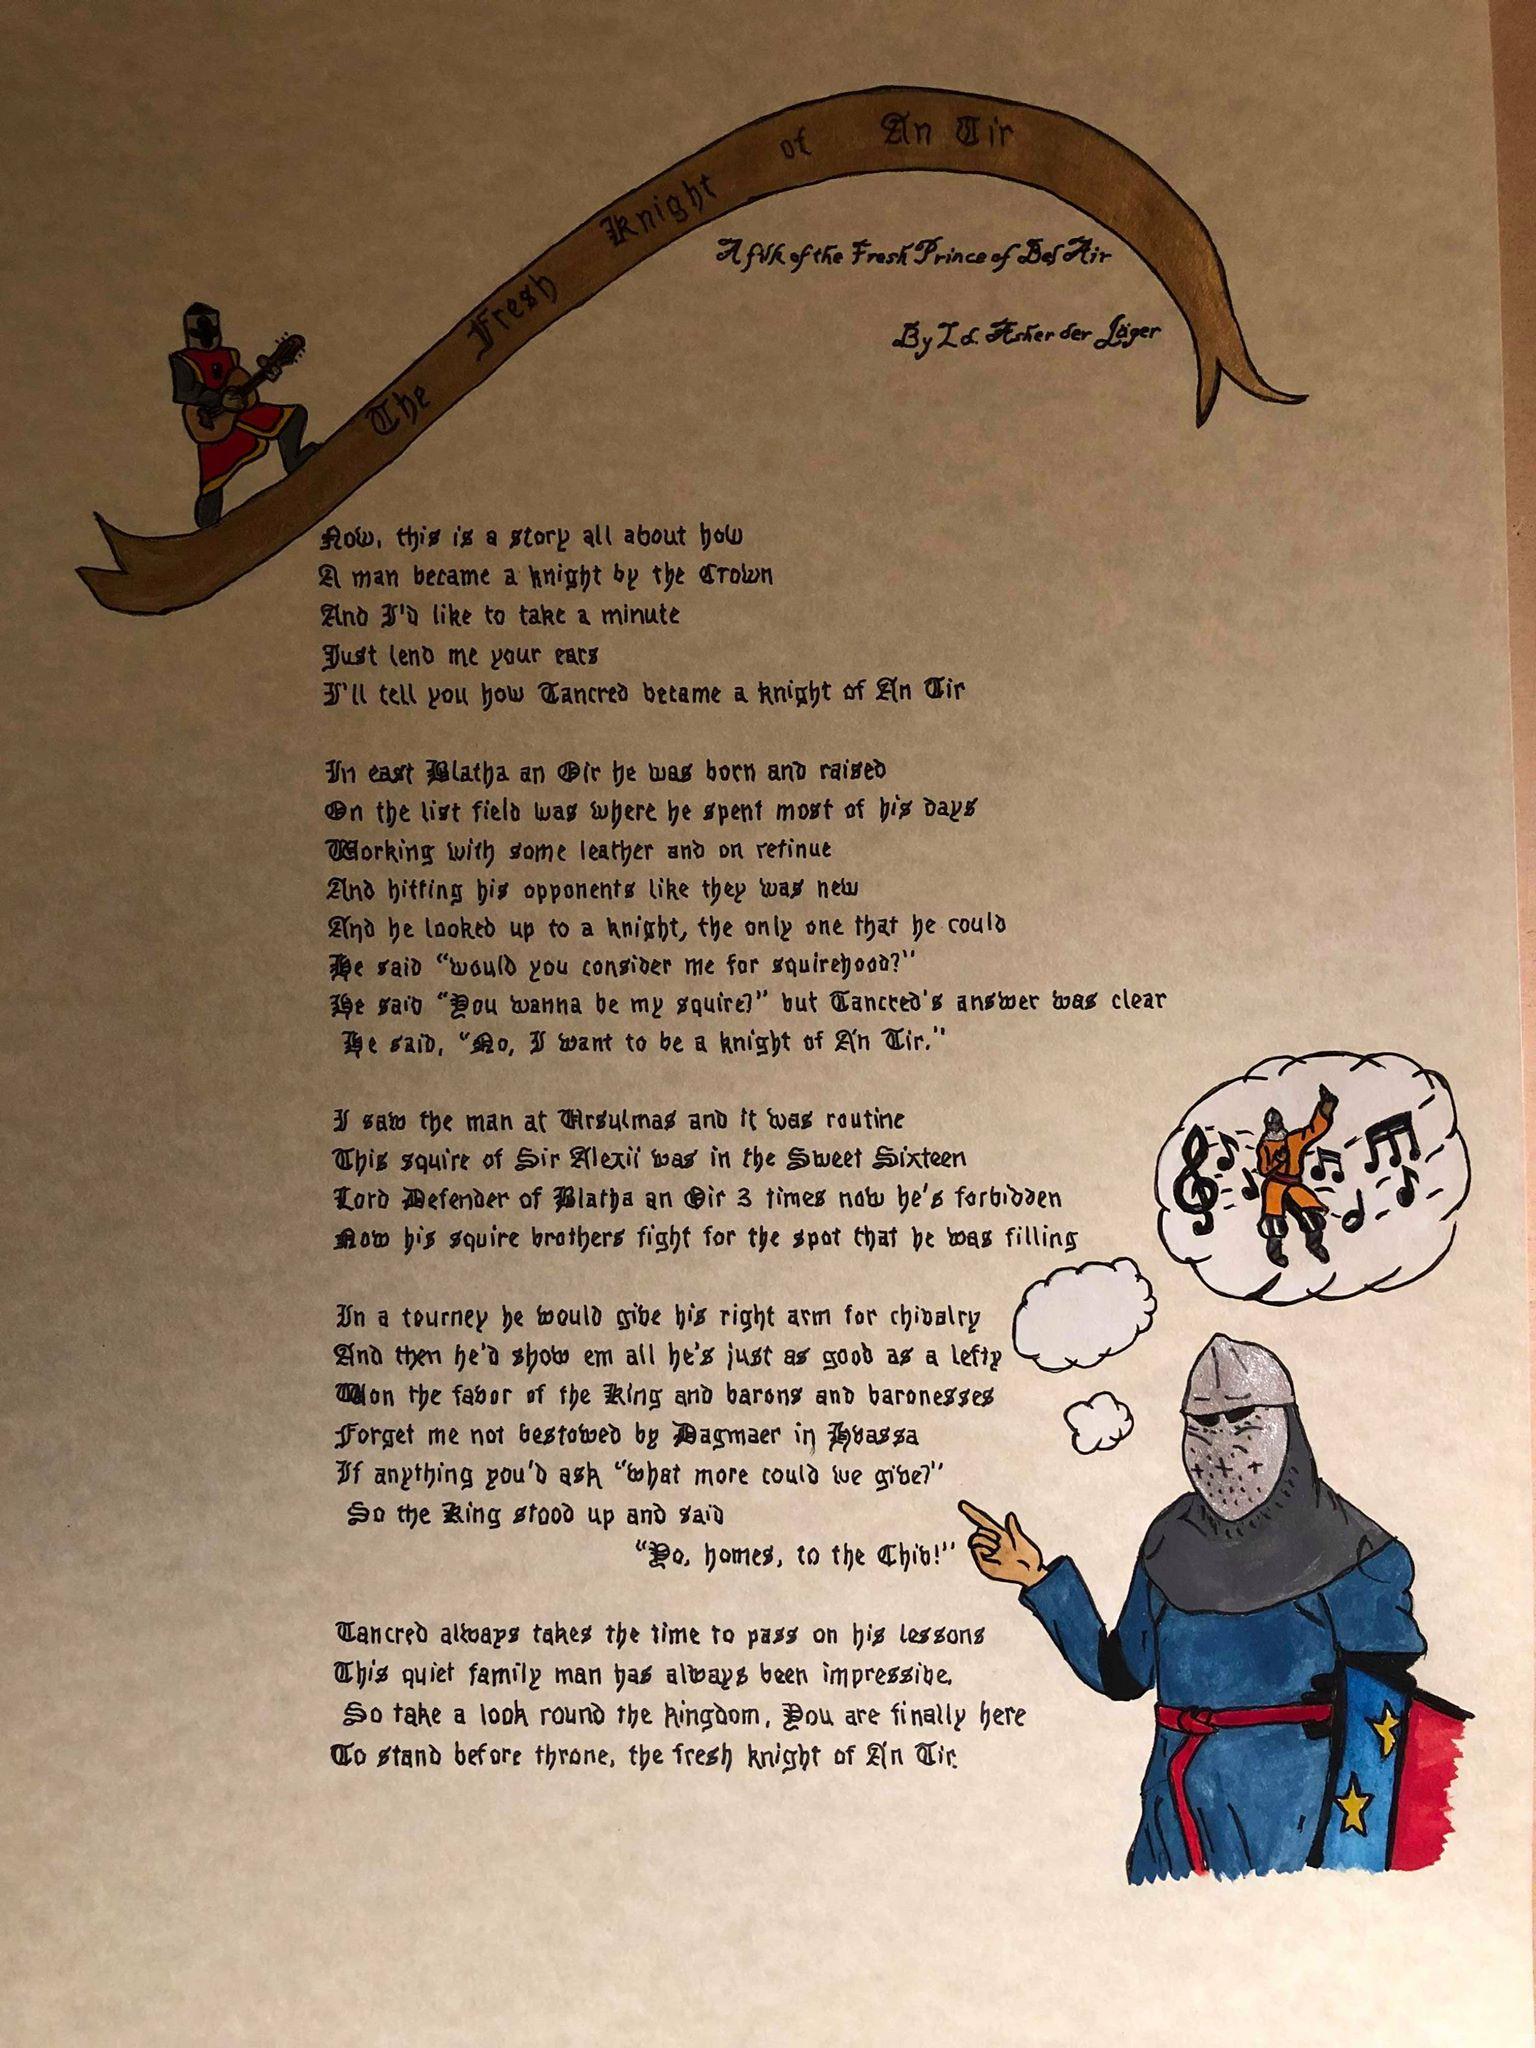 The Fresh Knight of An Tir
A filk of the Fresh Prince of Bel Air
By Ld. Asher der Jäger
Now, this is a story all about how
A man became a knight by the Crown
And I'd like to take a minute
Just lend me your ears
I'll tell you how Tancred became a knight of An Tir
In east Blatha an Oir he was born and raised
On the list field was where he spent most of his days
Working with some leather and on retinue
And hitting his opponents like they was new
And he looked up to a knight, the only one that he could
He said "would you consider me for squirehood?"
He said "You wanna be my squire?" but Tancred's answer was clear
He said, "No, I want to be a knight of An Tir."
I saw the man at Ursulmas and it was routine
This squire of Sir Alexii was in the Sweet Sixteen
Lord Defender of Blatha an Oir 3 times now he's forbidden
Now his squire brothers fight for the spot that he was filling
In a tourney he would give his right arm for chivalry
And then he'd show em all he's just as good as a lefty
Won the favor of the King and barons and baronesses
Forget me not bestowed by Dagmaer in Hvassa
If anything you'd ask "what more could we give?"
So the King stood up and said
"Yo, homes, to the Chiv!"
Tancred always takes the time to pass on his lessons
This quiet family man has always been impressive.
So take a look round the kingdom, You are finally here
To stand before throne, the fresh knight of An Tir.